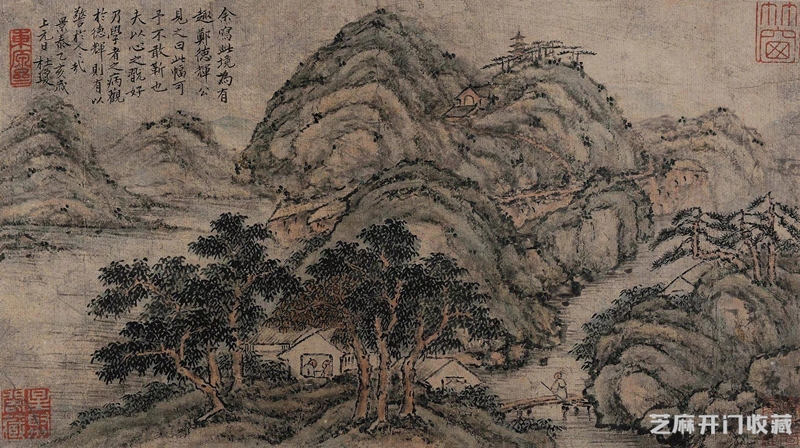 余寫此境為有
趣鄭德輝公
見之曰此幅可
予不敢靳也
夫以心之翫好
乃學者之病觀
於德輝則有以
警於人哉
景泰乙亥歲
上元日杜瓊
芝麻开门收藏